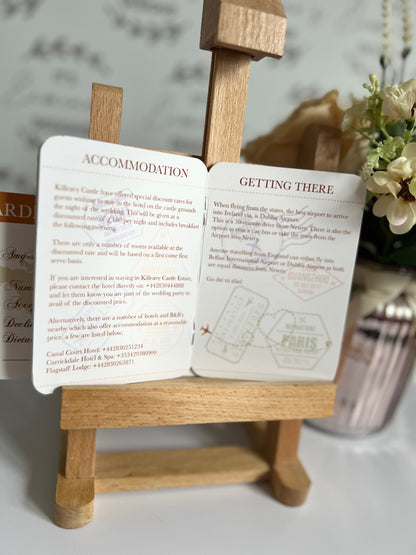 ACCOMMODATION
Killeavy Castle have offered special discount rates for
guests wishing to stay in the hotel on the castle grounds
the night of the wedding. This will be given at a
discounted rate of £160 per night and includes breakfast
the following morning.
There are only a number of rooms available at the
discounted rate and will be based on a first come first
serve basis.
If you are interested in staying in Killeavy Castle Estate,
please contact the hotel directly on: +4428304448
and let them know you are part of the wedding party to
avail of the discounted price.
Alternatively, there are a number of hotels and B&B's
nearby which also offer accommodation at a reasonable
price, a few are listed below:
Canal Court Hotel: +442830251234
Carrickdale Hotel & Spa: +353429380900
Flagstaff Lodge: +442830263871
GETTING THERE
When flying from the states, the best airport to arrive
into Ireland via, is Dublin Airport
This is a 50-minute drive from Newry. There is also the
option to rent a car, bus or take the train from the
Airport into Newry
Anyone travelling from England can either fly into
Belfast International Airport or Dublin Airport as both
are equal distances from Newry.
Go dtí tú slán!
PARIS
ARDI
Amy
Num
Acce
Declin
Dieta